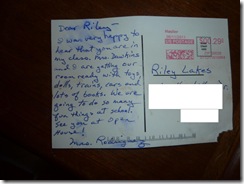 Dear Riley-
I was very happy to
hear that you are in
my class. Mrs. Dawkins
and I are getting our
room ready with toys
dolls, trains, cars and
lots of books. We are
going to do so many
fun things at school.
See you at Open
House!
Mrs.
Riley Lakes